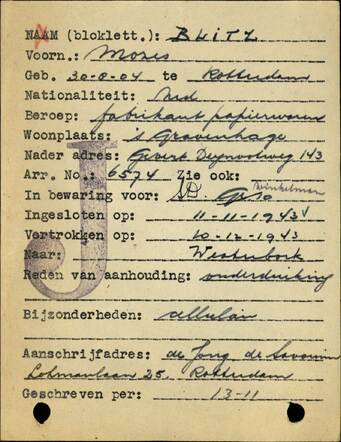 NAAM (bloklett.): BLITZ
Voorn.: Mozes
Geb. 30-8-04 te Rotterdam
Nationaliteit: Ned
Beroep: fabrikant papierwaren
Woonplaats: 's Gravenhage
Nader adres: Gevers Deynootweg 143
Arr. No.: 6574 Zie ook:
In bewaring voor: SD. Winkelman
Ingesloten op: 11-11-1943
Vertrokken op: 10-12-1943
Naar: Westerbork
Reden van aanhouding: onderduiking
Bijzonderheden:
Aanschrijfadres: de Jong de Savornin
Lohmanlaan 25, Rotterdam
Geschreven per: 13-11
J